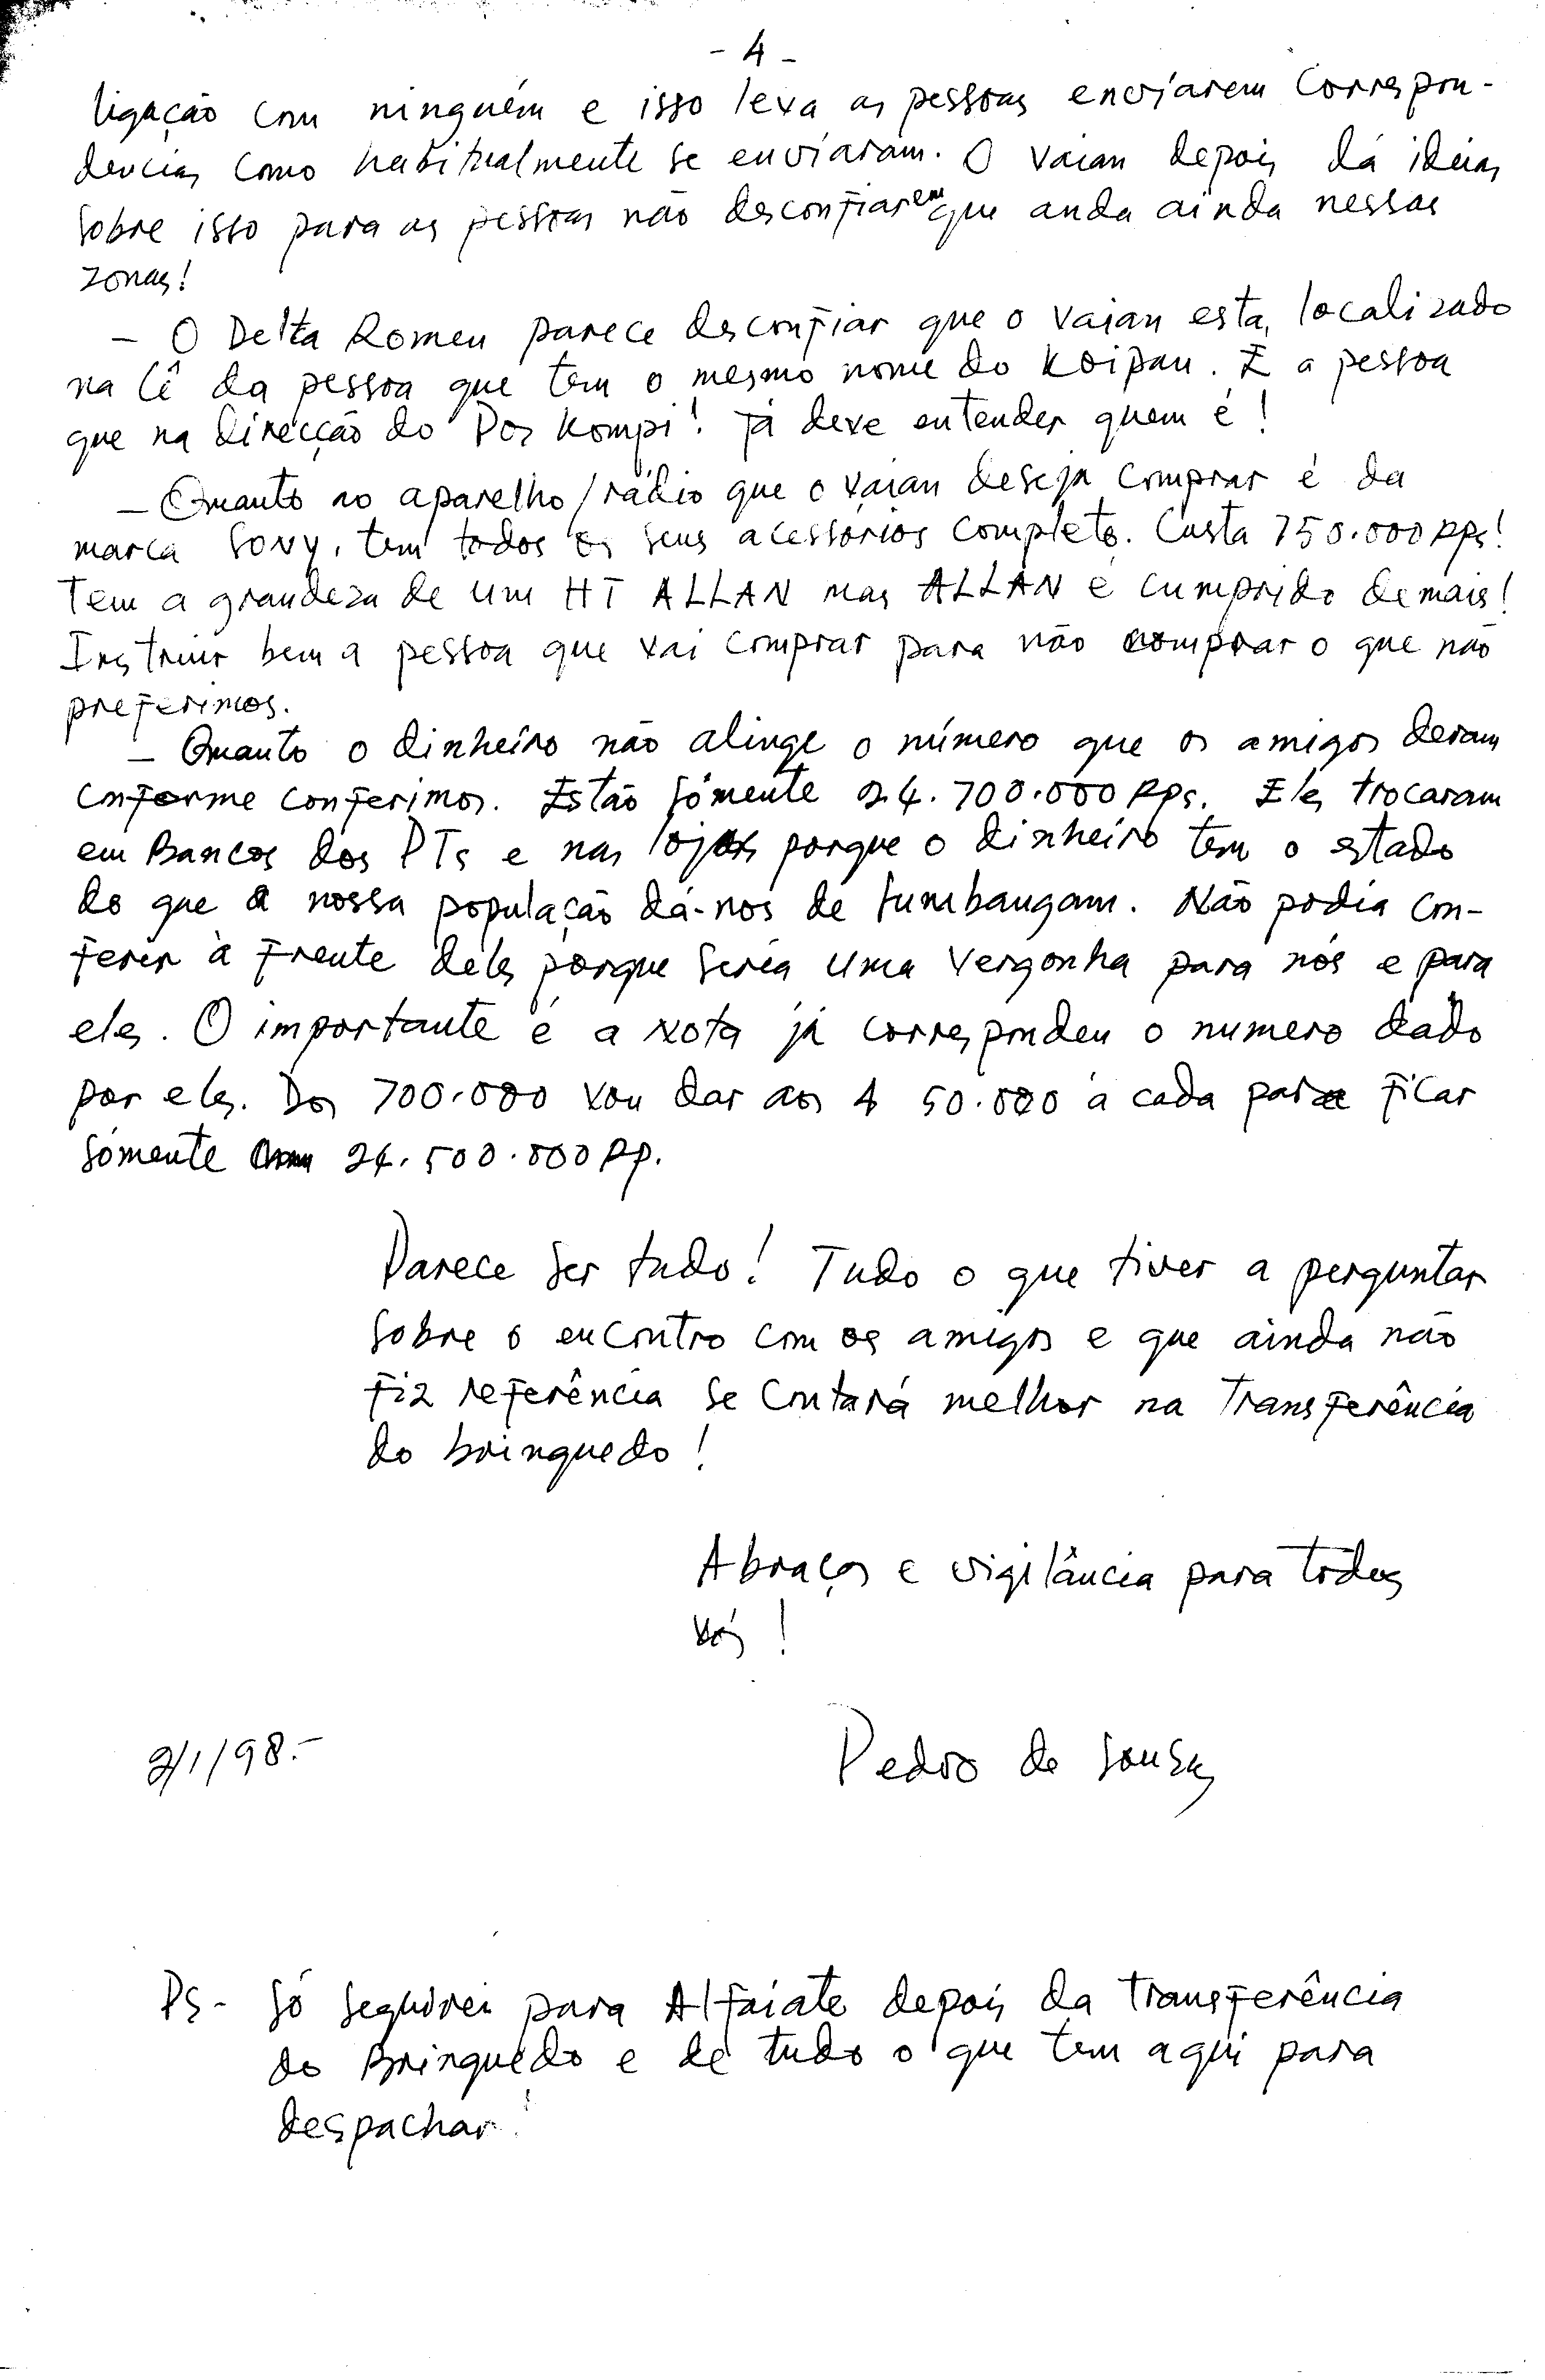 - 4 -
ligação com ninguém e isso leva as pessoas enviarem Correspon-
dencias como habitualmente se enviaram. O Vaian depois dá ideias
sobre isso para as pessoas não desconfiarem que anda ainda nessas
zonas!
- O Delta Romeu parece desconfiar que o Vaian está, localizado
na Cê da pessoa que tem o mesmo nome do Koipan. É a pessoa
que na direcção do Pos Kompi! Já deve entender quem é!
- Quanto ao aparelho/rádio que o Vaian deseja comprar é da
marca SONY, tem todos os seus acessórios completo. Custa 750.000 RPs!
Tem a grandeza de um HT ALLAN mas ALLAN é cumprido demais!
Instruir bem a pessoa que vai comprar para não comprar o que não
preferimos.
- Quanto o dinheiro não atinge o número que os amigos deram
conforme conferimos. Estão sómente 24.700.000 Rps. Eles trocaram
em Bancos dos PTs e nas lojas porque o dinheiro tem o estado
do que a nossa população dá-nos de sumbangam. Não podia con-
ferir à frente deles porque seria uma vergonha para nós e para
eles. O importante é a Nota já correspondeu o numero dado
por eles. Dos 700.000 vou dar aos 4 50.000 a cada para ficar
sómente 24.500.000 Rp.
Parece ser tudo! Tudo o que tiver a perguntar
sobre o encontro com os amigos e que ainda não
fiz referência se contará melhor na Transferência
do brinquedo!
Abraços e vigilância para todos
vós!
2/1/98.-
Pedro de Sousa
PS - Só seguirei para Alfaiate depois da Transferência
do Brinquedo e de tudo o que tem aqui para
despachar!